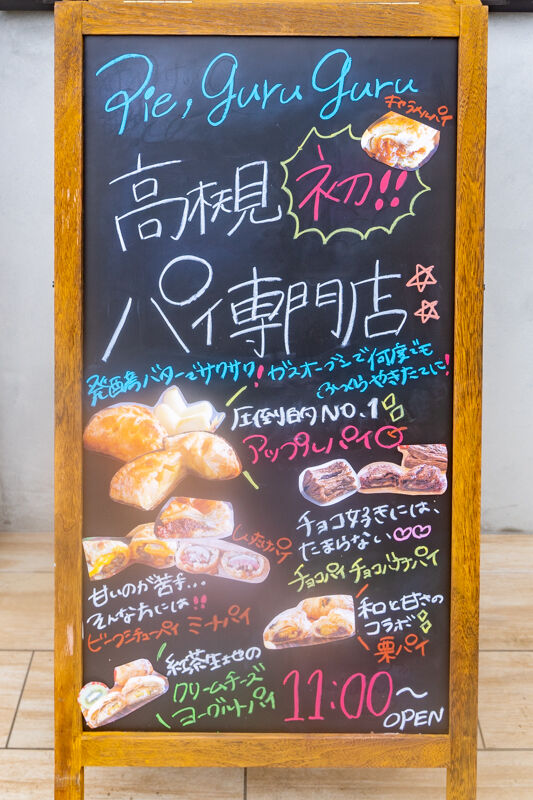 Pie, guru guru
キャラメルパイ
高槻
初!!
パイ専門店
発酵バターでサクサク!
ガスオーブンで何度でも
ふっくらやきたてに!
圧倒的NO.1
アップルパイ
チョコ好きには、
たまらない
チョコパイ チョコバナナパイ
しょたけパイ
甘いのが苦手...
そんな方には!!
ビーフシチューパイ ミートパイ
和と甘さの
コラボ
栗パイ
紅茶生地の
クリームチーズ
ヨーグルトパイ
11:00〜
OPEN